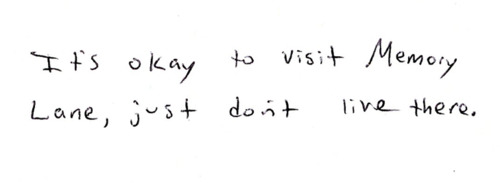 It's okay to visit Memory
Lane, just don't live there.